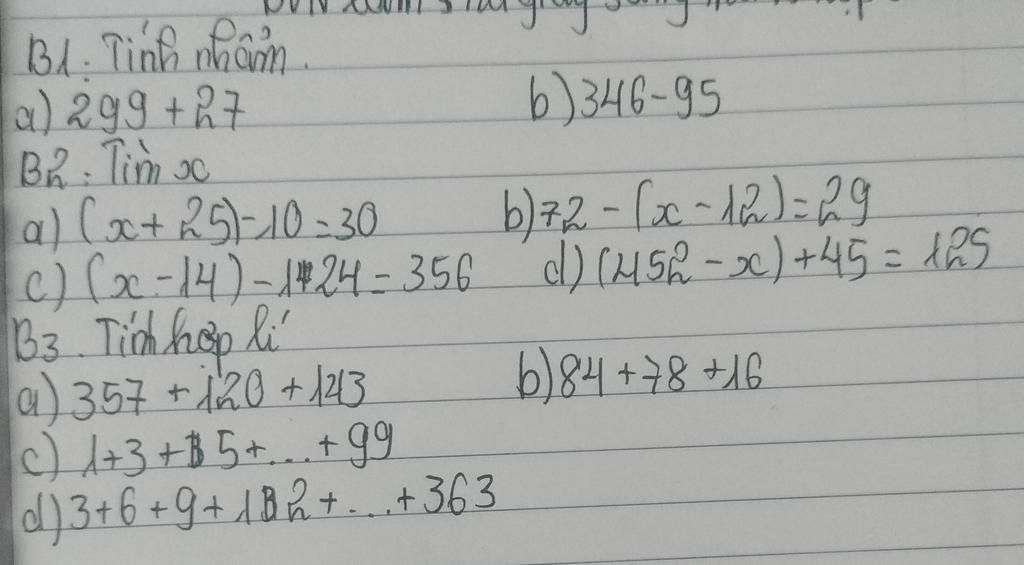 B1: Tính nhẩm.
a) 299 + 27 b) 346 - 95
B2: Tìm x
a) (x + 25) - 10 = 30 b) 72 - (x - 12) = 29
c) (x - 14) - 124 = 356 d) (452 - x) + 45 = 125
B3. Tính hợp lí
a) 357 + 120 + 143 b) 84 + 78 + 16
c) 1 + 3 + 5 + ... + 99
d) 3 + 6 + 9 + 12 + ... + 363